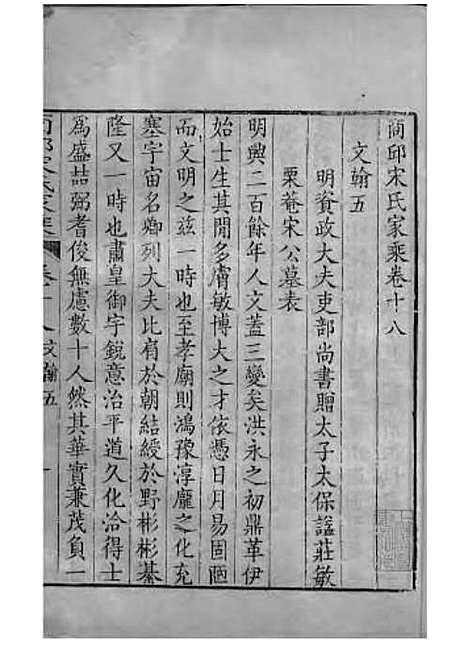 商邱宋氏家乘卷十八
文翰五
明資政大夫吏部尚書贈太子太保謚莊敏
栗菴宋公墓表
明興二百餘年人文蓋三變矣洪永之初鼎革伊
始士生其間多膚敏博大之才依憑日月易固陋
而文明之茲一時也至孝廟則鴻豫淳龐之化充
塞宇宙名卿列大夫比肩於朝結綬於野彬彬棊
隆又一時也肅皇御宇銳意治平道久化洽得士
爲盛喆弼耆俊無慮數十人然其華實兼茂負一
商邱宋氏家乘 卷十八文翰五 一